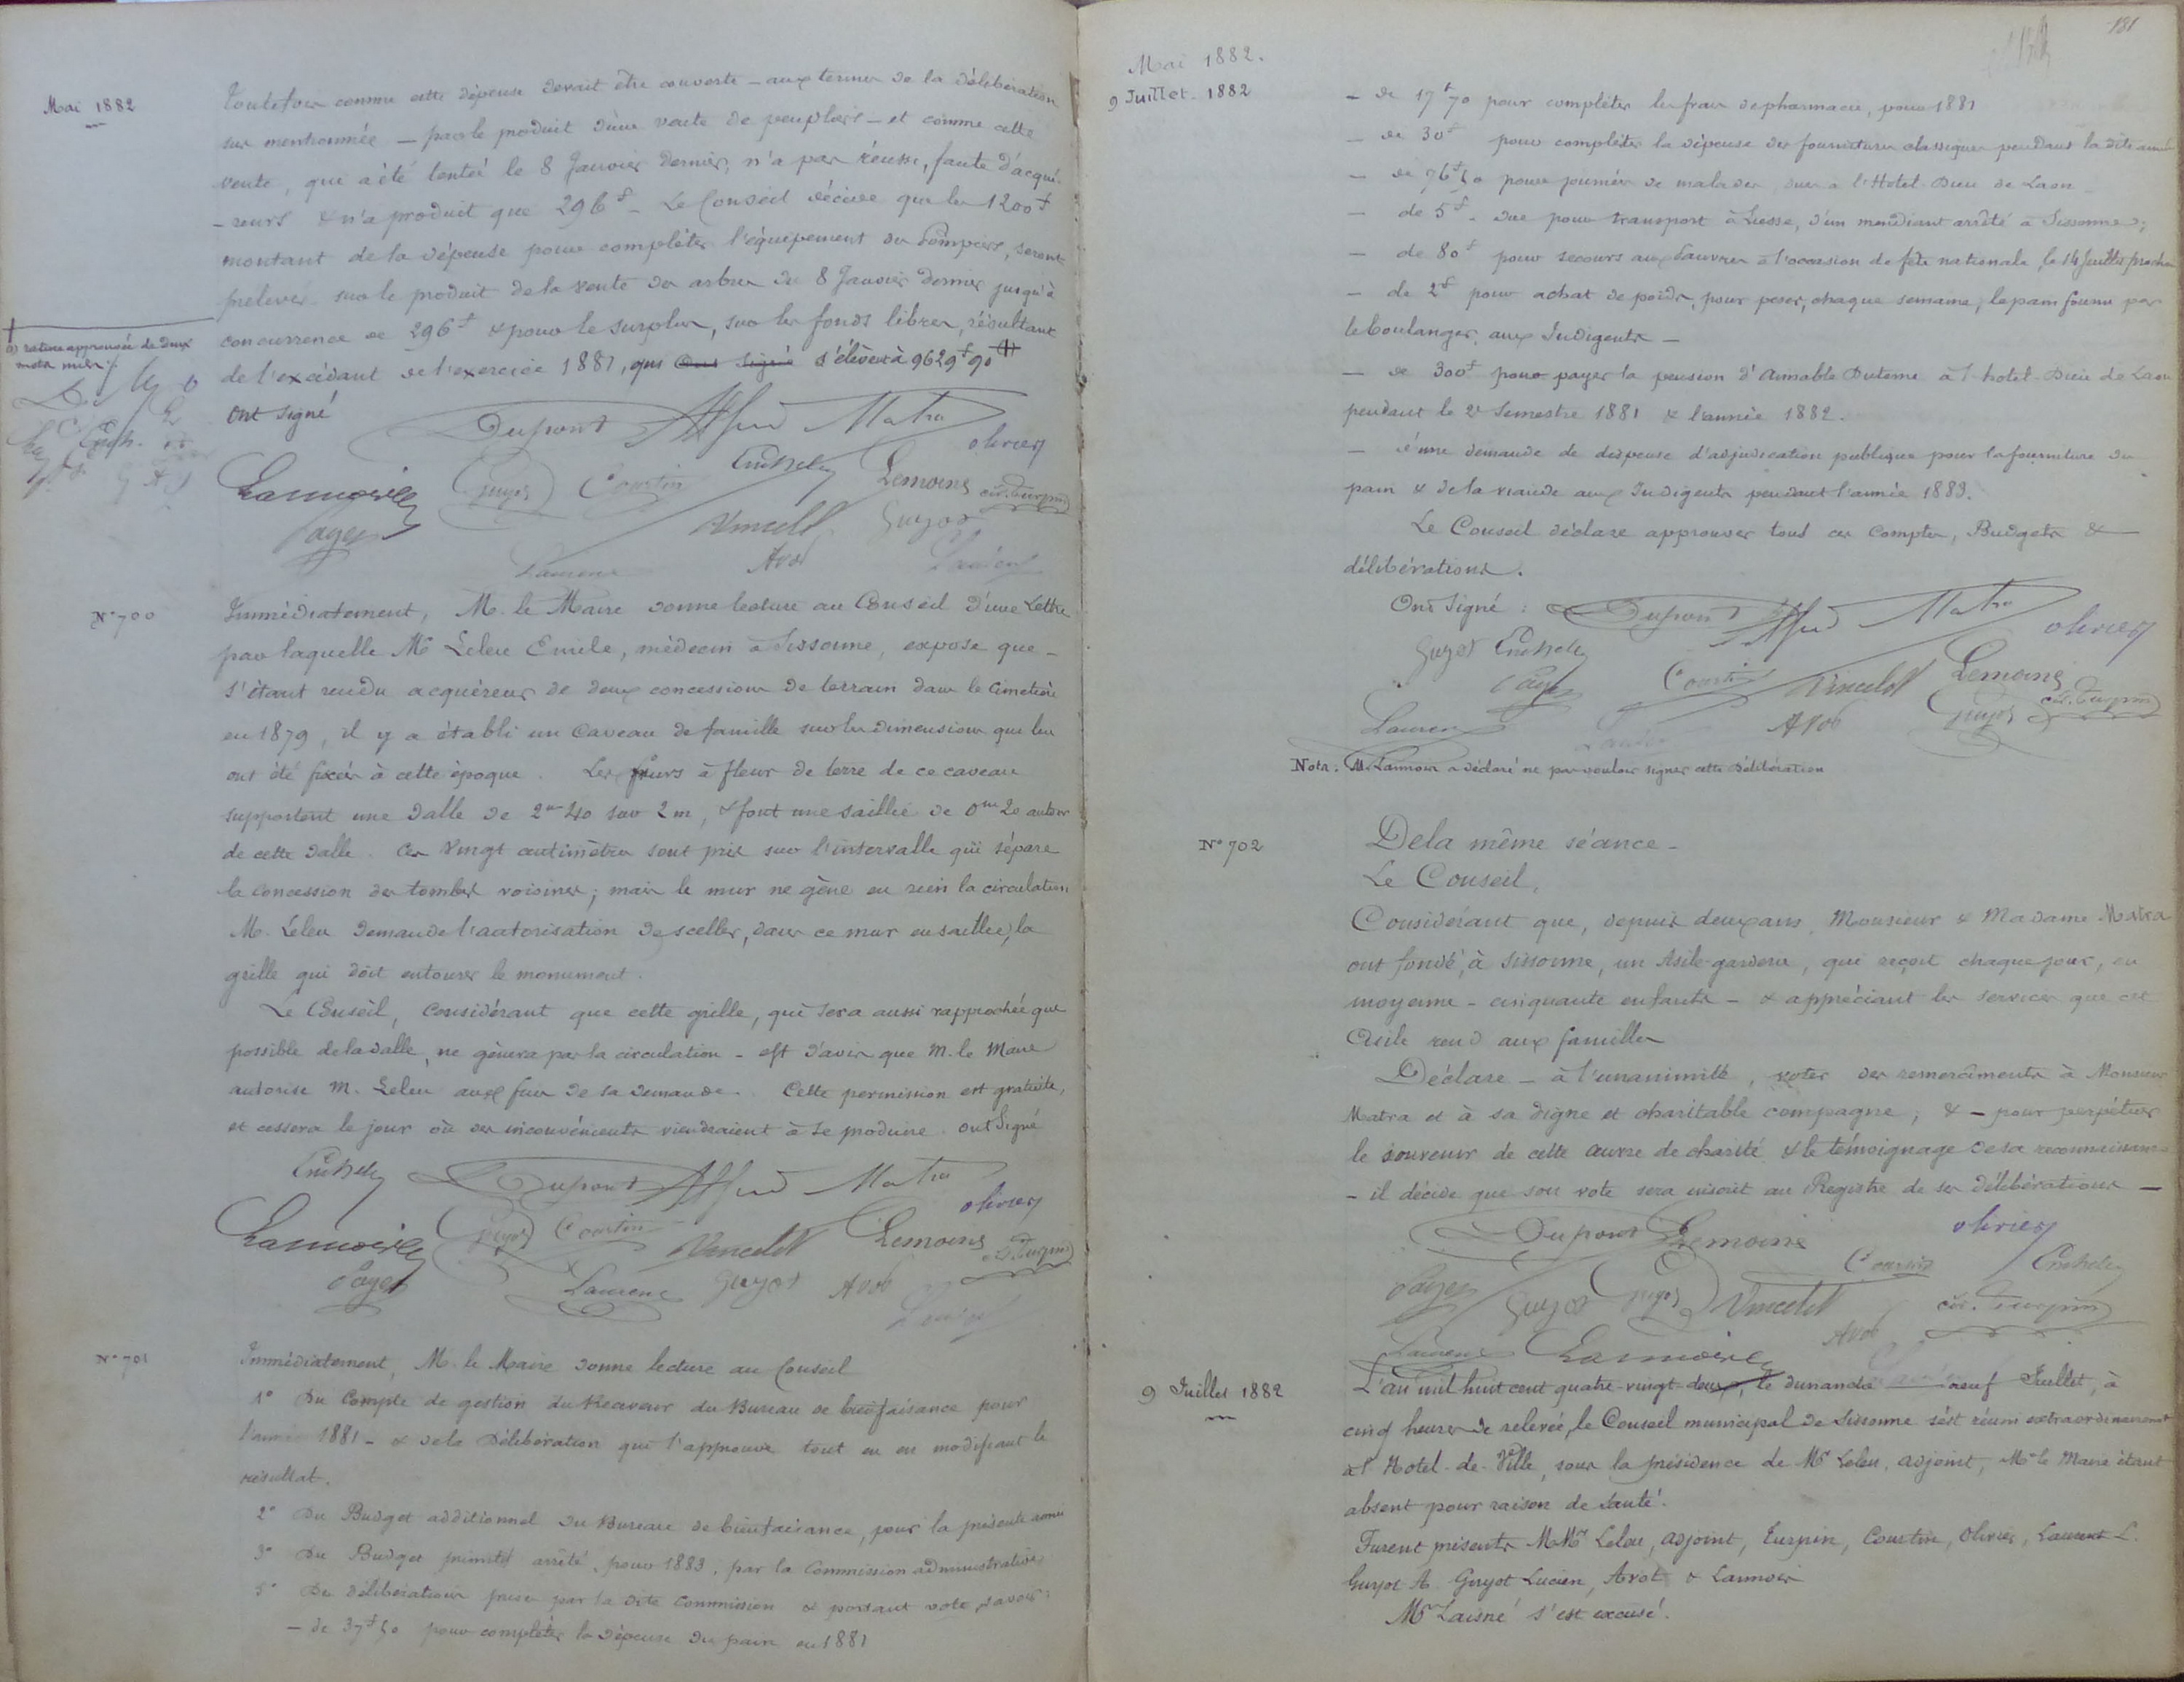 Mai 1882
Toutefois comme cette dépense devait être couverte – aux termes de la délibération
sus mentionnée – par le produit d'une vente de peupliers – et comme cette
vente, qui a été tentée le 8 Janvier dernier, n'a pas réussi, faute d'acqué-
-reurs & n'a produit que 296f – Le Conseil décide que les 1200f
montant de la dépense pour compléter l'équipement des Pompiers, seront
prelevés sur le produit de la vente des arbres du 8 Janvier dernier jusqu'à
concurrence de 296f & pour le surplus, sur les fonds libres, résultant
de l'excédant de l'exercice 1881, qui Ont Signé s'élèvent à 9629f90 (1)
(1) rature approuvée de deux
mots nuls
ont signé
Dupont Alfred Matra
olivier
Lannois Guyot Courtin Lemoine Turpin
Payer Vincelot Guyot
Laurent Avot
N° 700
Immédiatement, M. le Maire donne lecture au Conseil d'une Lettre
par laquelle Mr Leleu Emile, médecin à Sissonne, expose que –
s'étant rendu acquéreur de deux concessions de terrain dans le Cimetière
en 1879, il y a établi un Caveau de famille sur les dimensions qui lui
ont été fixées à cette époque. Les murs à fleur de terre de ce caveau
supportent une dalle de 2m 40 sur 2m, & font une saillie de 0m 20 autour
de cette dalle. Ces Vingt centimètres sont pris sur l'intervalle qui sépare
la concession des tombes voisines; mais le mur ne gène en rien la circulation
M. Leleu demande l'autorisation de sceller, dans ce mur en saillie, la
grille qui doit entourer le monument.
Le Conseil, considérant que cette grille, qui sera aussi rapprochée que
possible de la dalle, ne gênera pas la circulation – est d'avis que M. le Maire
autorise M. Leleu aux fins de sa demande. Cette permission est gratuite,
et cessera le jour où des inconvénients viendraient à se produire. Ont Signé
Dupont Alfred Matra
olivier
Lannois Guyot Courtin Vincelot Lemoine Turpin
Payer Laurent Guyot Avot
N° 701
Immédiatement, M. le Maire donne lecture au Conseil
1° Du Compte de gestion du Receveur du Bureau de bienfaisance pour
l'année 1881 – & de la Délibération qui l'approuve tout en en modifiant le
résultat.
2° Du Budget additionnel du Bureau de bienfaisance, pour la présente année
3° Du Budget primitif arrêté, pour 1883, par la Commission administrative
5° Des délibérations prises par la dite Commission & portant vote, savoir :
– de 37f50 pour compléter la dépense du pain en 1881
181
Mai 1882.
9 Juillet 1882
– de 17f70 pour compléter les frais de pharmacie, pour 1881
– de 30f pour compléter la dépense des fournitures classiques pendant la dite année
– de 76f50 pour journées de malades, dues à l'Hotel-Dieu de Laon
– de 5f – due pour transport à Liesse, d'un mendiant arrêté à Sissonne;
– de 80f pour secours aux Pauvres à l'occasion de fête nationale, le 14 Juillet prochain
– de 2f pour achat de poids, pour peser, chaque semaine, le pain fourni par
le boulanger, aux Indigents –
– de 300f pour payer la pension d'Annable Duterne à l'hotel-Dieu de Laon
pendant le 2e Semestre 1881 & l'année 1882.
– d'une demande de dispense d'adjudication publique pour la fourniture du
pain & de la viande aux Indigents pendant l'année 1883.
Le Conseil déclare approuver tous ces Comptes, Budgets &
délibérations.
Ont Signé : Dupont Alfred Matra
olivier
Guyot
Payer Courtin Vincelot Lemoine
Laurent Avot Guyot Turpin
Nota : M. Lannois a déclaré ne pas vouloir signer cette délibération
N° 702
De la même séance –
Le Conseil,
Considérant que, depuis deux ans, Monsieur & Madame Matra
ont fondé, à Sissonne, un Asile-garderie, qui reçoit chaque jour, en
moyenne – cinquante enfants – & appréciant les services que cet
Asile rend aux familles
Déclare – à l'unanimité, voter des remercîments à Monsieur
Matra et à sa digne et charitable compagne; & – pour perpétuer
le souvenir de cette œuvre de charité & le témoignage de sa reconnaissance
– il décide que son vote sera inscrit au Registre de ses délibérations –
Dupont Lemoine olivier
Courtin
Payer Guyot Guyot Vincelot Turpin
Avot
Laurent Lannois
9 Juillet 1882
L'an mil huit cent quatre-vingt-deux, le dimanche neuf Juillet, à
cinq heures de relevée, le Conseil municipal de Sissonne s'est réuni extraordinairement
à l'Hotel-de-Ville, sous la présidence de Mr Leleu, adjoint, Mr le Maire étant
absent pour raison de Santé.
Furent présents MMrs Leleu, adjoint, Turpin, Courtin, Olivier, Laurent L.
Guyot A. Guyot Lucien, Avot & Lannois
Mr Laisné s'est excusé.